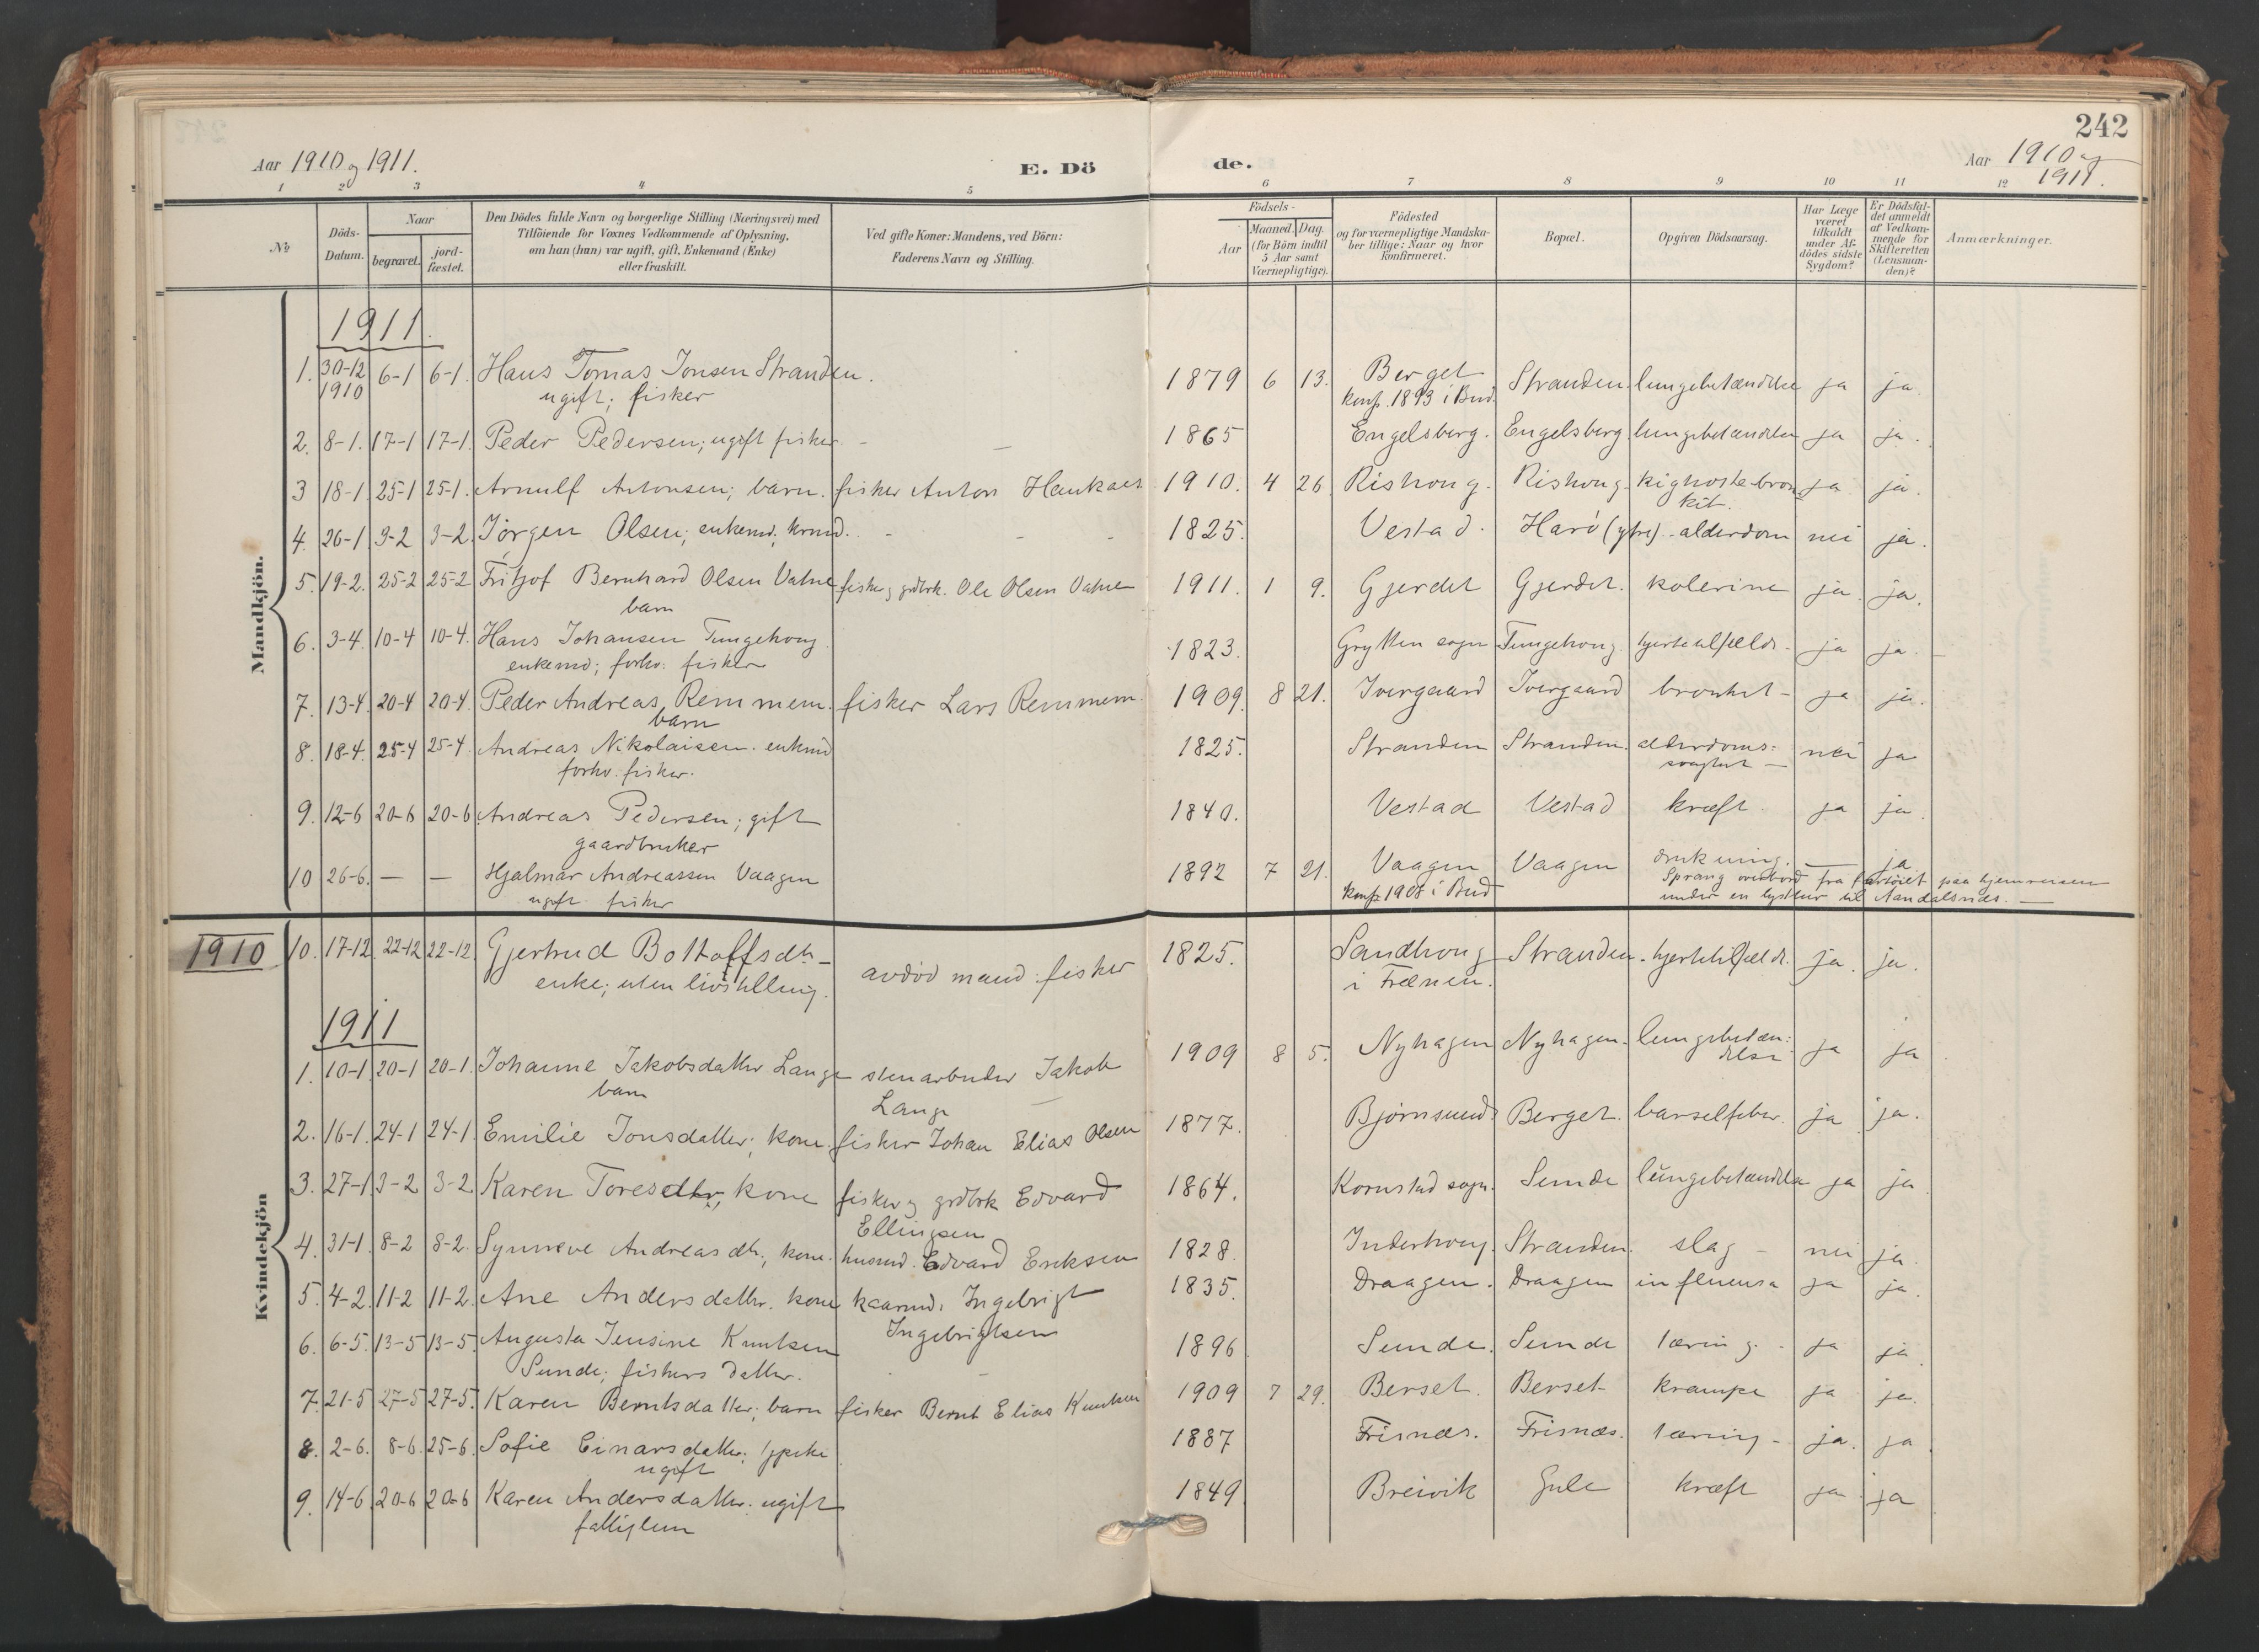 242
Aar 1910 og 1911.
E. Döde.
Aar 1910 og 1911.
1 2 3 4 5 6 7 8 9 10 11 12
№
Döds-Datum.
Naar begravet. jord-fæstet.
Den Dödes fulde Navn og borgerlige Stilling (Næringsvei) med Tilföiende for Voxnes Vedkommende af Oplysning, om han (hun) var ugift, gift, Enkemand (Enke) eller fraskilt.
Ved gifte Koner: Mandens, ved Börn: Faderens Navn og Stilling.
Födsels- Aar Maaned. Dag. (for Börn indtil 5 Aar samt Værnepligtige).
Födested og for værnepligtige Mandskaber tillige: Naar og hvor Konfirmeret.
Bopæl.
Opgiven Dödsaarsag.
Har Læge været tilkaldt under Afdödes sidste Sygdom?
Er Dödsfaldet anmeldt af Vedkommende for Skifteretten (Lensmanden)?
Anmærkninger.
Mandkjön.
1911.
1. 30-12 1910 6-1 6-1. Hans Tomas Jonsen Stranden. 1879 6 13. Berget Stranden. lungebetændelse ja ja.
ugift; fisker konf. 1893 i Bud.
2. 8-1. 17-1 17-1. Peder Pedersen; ugift fisker. - - 1865 Engelsberg. Engelsberg. lungebetændelse ja ja.
3 18-1. 25-1 25-1. Arnulf Antonsen; barn. fisker Anton 1910. 4 26 Rishoug. Rishoug. kighoste-bron- ja ja.
kit.
4. 26-1. 3-2 3-2. Jörgen Olsen; enkemd. - - - 1825. Vestad. Harö (ytre). alderdom nei ja.
5. 19-2. 25-2 25-2 Fritjof Bernhard Olsen Vatne fisker og grdbrk. Ole Olsen Vatne 1911. 1 9. Gjerdet Gjerdet. kolerine ja. ja.
barn
6. 3-4. 10-4 10-4. Hans Johansen Tungehoug. 1823. Grytten sogn Tungehoug. hjertetilfælde. ja ja.
enkemd; forhv. fisker
7. 13-4. 20-4 20-4. Peder Andreas Remmem. fisker Lars Remmem. 1909. 8 21. Ivergaard Ivergaard bronkit - ja ja.
barn
8. 18-4. 25-4 25-4. Andreas Nikolaisen. enkmd 1825. Stranden Stranden. alderdoms: nei ja
forhv. fisker. svaghet —
9. 12-6 20-6 20-6 Andreas Pedersen; gift 1840. Vestad Vestad kræft. ja ja.
gaardbruker
10 26-6. — — Hjalmar Andreassen Vaagen 1892 7 21. Vaagen Vaagen drukning. — ja
ugift fisker konf. 1908 i Bud Sprang overbord fra fartöiet paa hjemreisen
under en lysttur til Aandalsnes. —
Kvindekjön
1910 10. 17-12. 22-12 22-12. Gjertrud Bottolfsdtr - avdöd mand: fisker 1825. Sandhoug Stranden. hjertetilfælde. ja. ja.
enke; uten livsstilling. i Frænen.
1911
1. 10-1. 20-1 20-1. Johanne Jakobsdatter Lange stenarbeider Jakob 1909 8 5. Nyhagen Nyhagen. lungebetæn: ja ja
barn Lange delse
2. 16-1. 24-1 24-1. Emilie Jonsdatter; kone. fisker Johan Elias Olsen 1877. Björnsund. Berget. barselfeber. ja ja.
3. 27-1. 3-2 3-2. Karen Toresdtr, kone fisker og grdbrk Edvard 1864. Kornstad sogn. Sunde lungebetændelse ja ja
Ellingsen
4. 31-1. 8-2 8-2. Synneve Andreasdtr; kone. husmd. Edvard Eriksen 1828. Inderhoug. Stranden. slag - nei ja
5. 4-2. 11-2 11-2. Ane Andersdatter. kone kaarmd. Ingebrigt 1835. Draagen. Draagen influensa ja ja.
Ingebrigtsen
6. 6-5. 13-5 13-5. Augusta Jensine Knutsen 1896 Sunde. Sunde tæring. - ja ja.
Sunde; fiskers datter.
7. 21-5 27-5 27-5. Karen Berntsdatter; barn fisker Bernt Elias Knutsen 1909 7 29. Berset. Berset krampe ja ja.
8. 2-6. 8-6. 25-6. Sofie Einarsdatter; tjpike 1887 Frisnæs. Frisnæs. tæring - ja. ja
ugift
9. 14-6 20-6 20-6 Karen Andersdatter. ugift 1849. Breivik Gule kræft ja ja
fattiglem